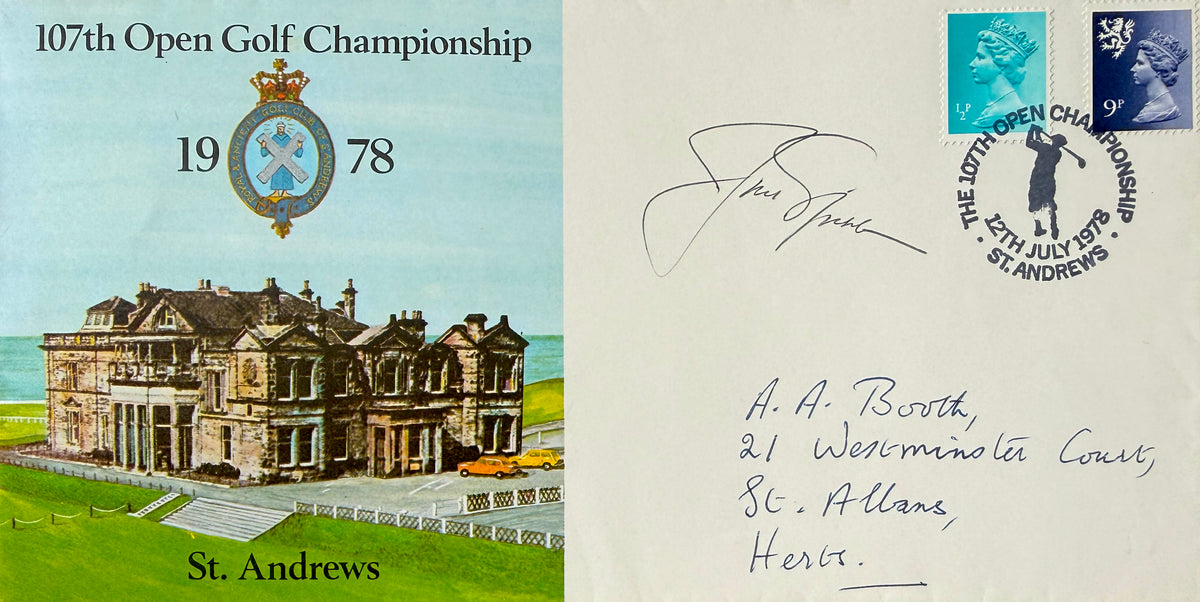 107th Open Golf Championship
19 78
ROYAL & ANCIENT GOLF CLUB OF ST ANDREWS
St. Andrews
½P
9P
THE 107TH OPEN CHAMPIONSHIP
12TH JULY 1978
• ST. ANDREWS •
A. A. Booth,
21 Westminster Court,
St. Albans,
Herts.